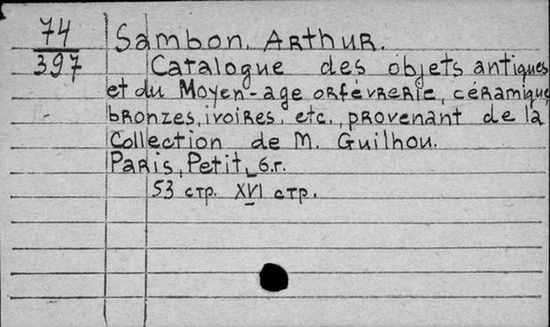 74
397
Sambon, Arthur.
Catalogue des objets antiques
et du Moyen-age orfèvrerie, céramique,
bronzes, ivoires, etc., provenant de la
Collection de M. Guilhou.
Paris, Petit, б.г.
53 стр. XVI стр.